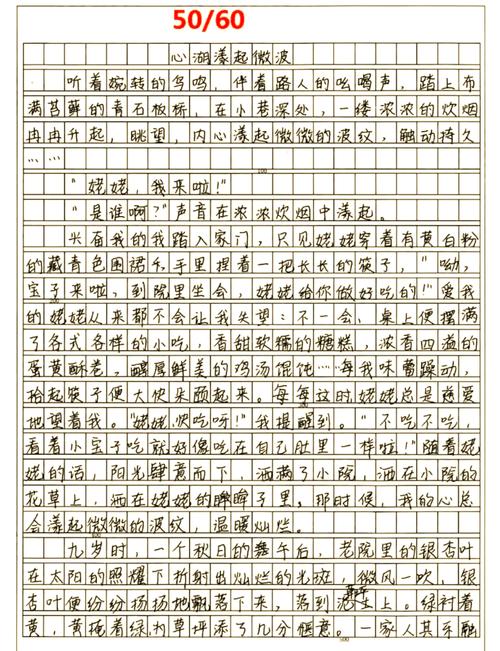 50/60
心湖漾起微波
听着婉转的鸟鸣,伴着路人的吆喝声,踏上布
满苔藓的青石板桥,在小巷深处,一缕浓浓的炊烟
冉冉升起,眺望,内心漾起微微的波纹,触动持久
……
100
"姥姥,我来啦!"
"是谁啊?"声音在浓浓炊烟中漾起。
兴奋我的我踏入家门,只见姥姥穿着有黄白粉
的藏青色围裙,手里捏着一把长长的筷子,"呦,
宝子来啦,到院里坐会,姥姥给你做好吃的!"爱我
的姥姥从来都不会让我失望:不一会,桌上便摆满
了各式各样的小吃,香甜软糯的糖糕,浓香四溢的
蛋黄酥卷,醇厚鲜美的鸡汤馄饨……每我味蕾躁动,
拾起筷子便大快朵颐起来。每每这时,姥姥总是慈爱
地望着我。"姥姥,快吃呀!"我提醒到。"不吃不吃,
看着小宝子吃就好像吃在自己肚里一样啦!"随着姥
姥的话,阳光肆意而下,洒满了小院,洒在小院的
花草上,洒在姥姥的眸子里,那时候,我的心总
会漾起微微的波纹,温暖灿烂。
九岁时,一个秋日的午后,老院里的银杏叶
在太阳的照耀下折射出灿烂的光斑,微风一吹,银
杏叶便纷纷扬扬地飘落下来,落到上。绿衬着
黄,黄掩着绿,草坪添了几分惬意。一家人其乐融
500